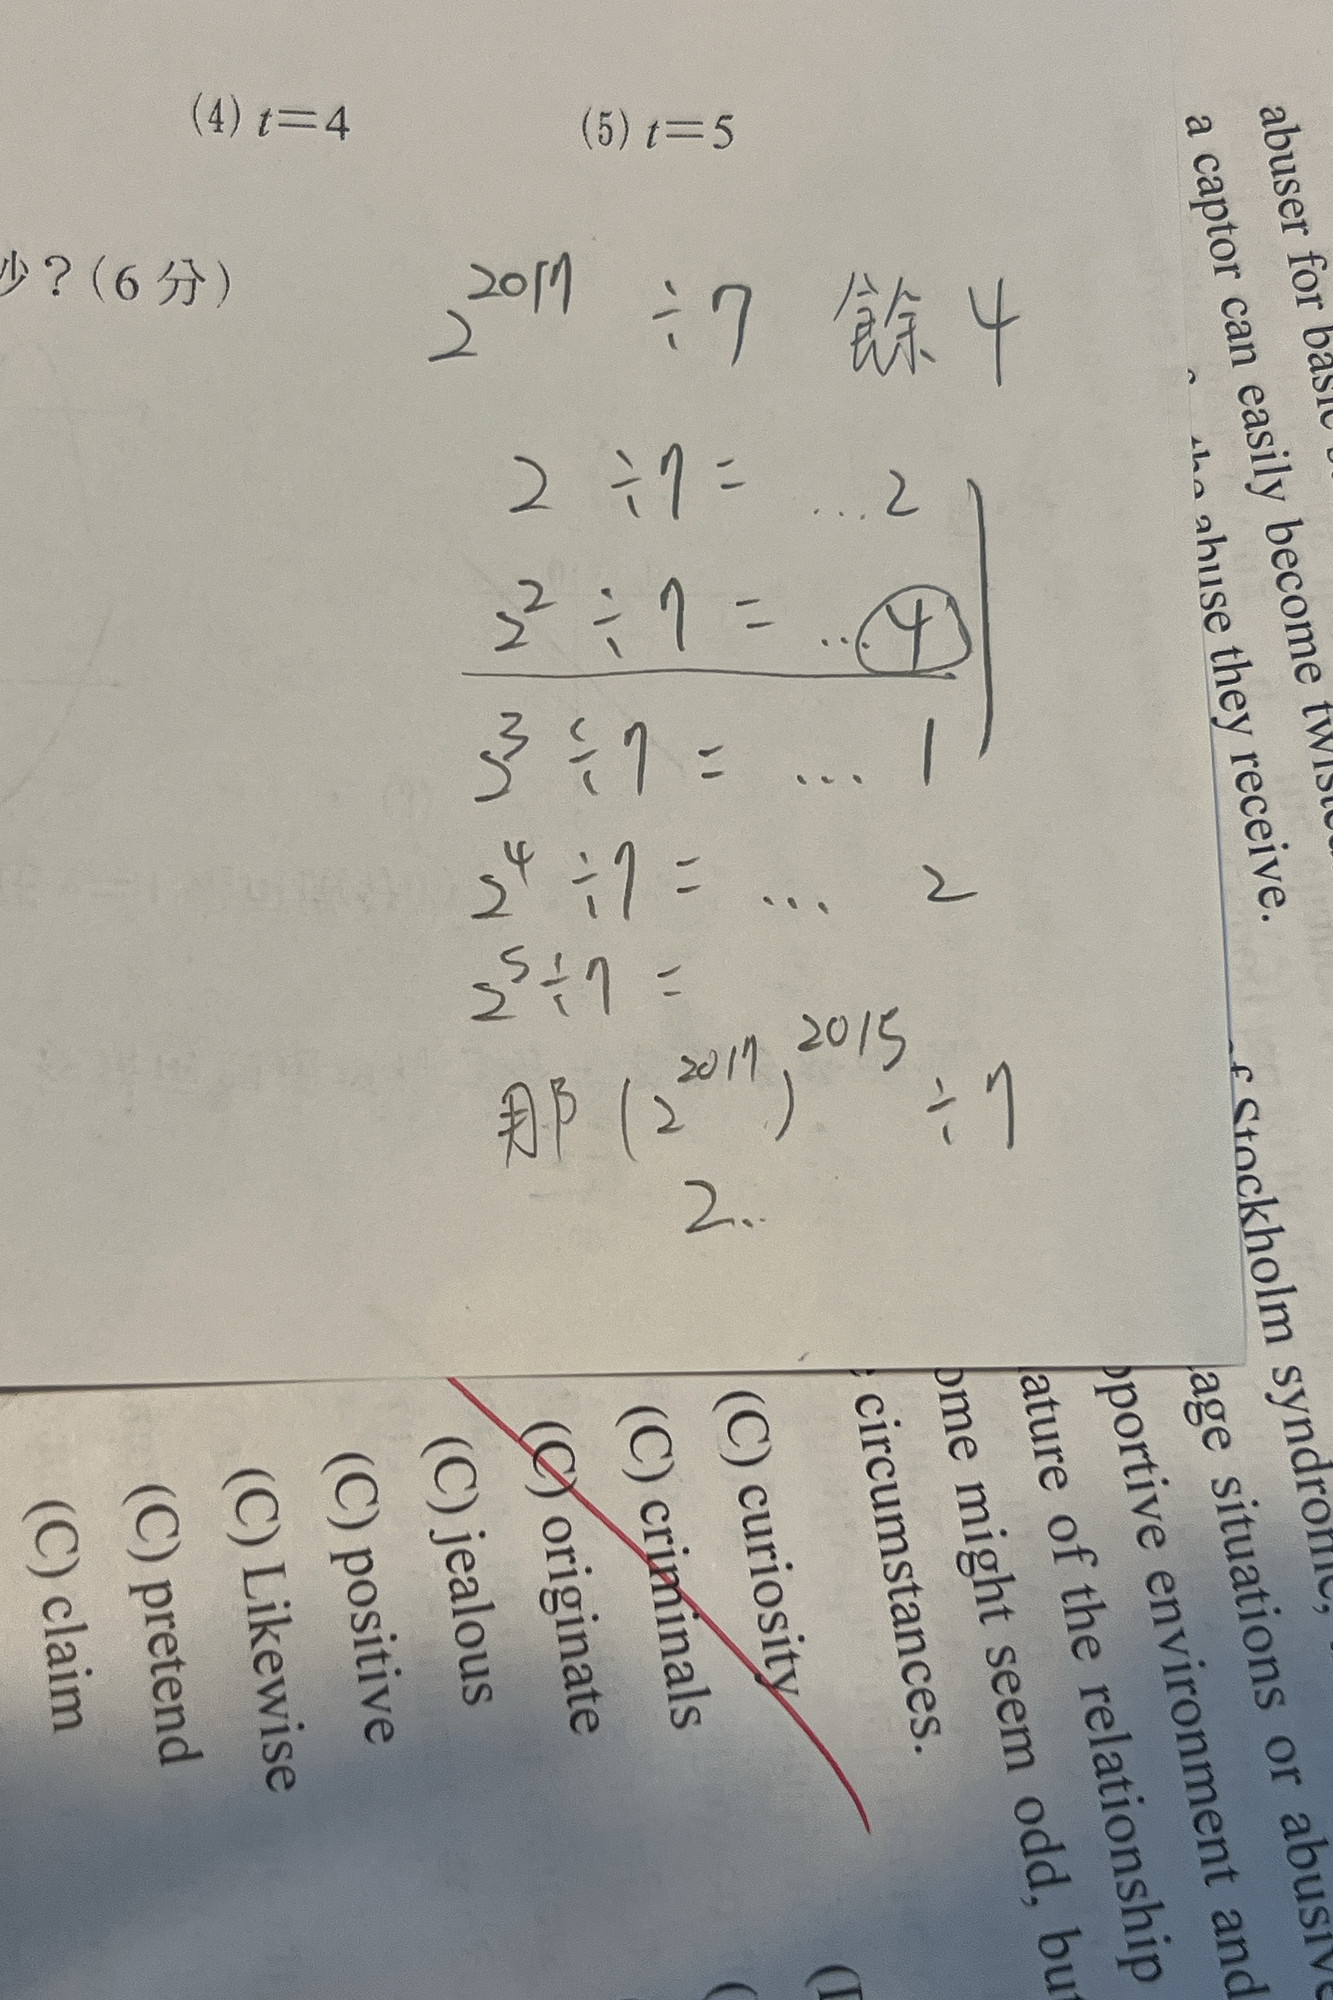 (4) t=4 (5) t=5
?(6 分)
2^2017 ÷7 餘 4
2 ÷7= ...2
2^2 ÷7= ...4
2^3 ÷7= ... 1
2^4 ÷7= ... 2
2^5 ÷7=
那 (2^2017)^2015 ÷7
2..
abuser for basic
a captor can easily become
the abuse they receive.
of Stockholm syndrome,
situations or
environment and
of the relationship
might seem odd, but
circumstances.
(C) curiosity
(C) criminals
(C) originate
(C) jealous
(C) positive
(C) Likewise
(C) pretend
(C) claim